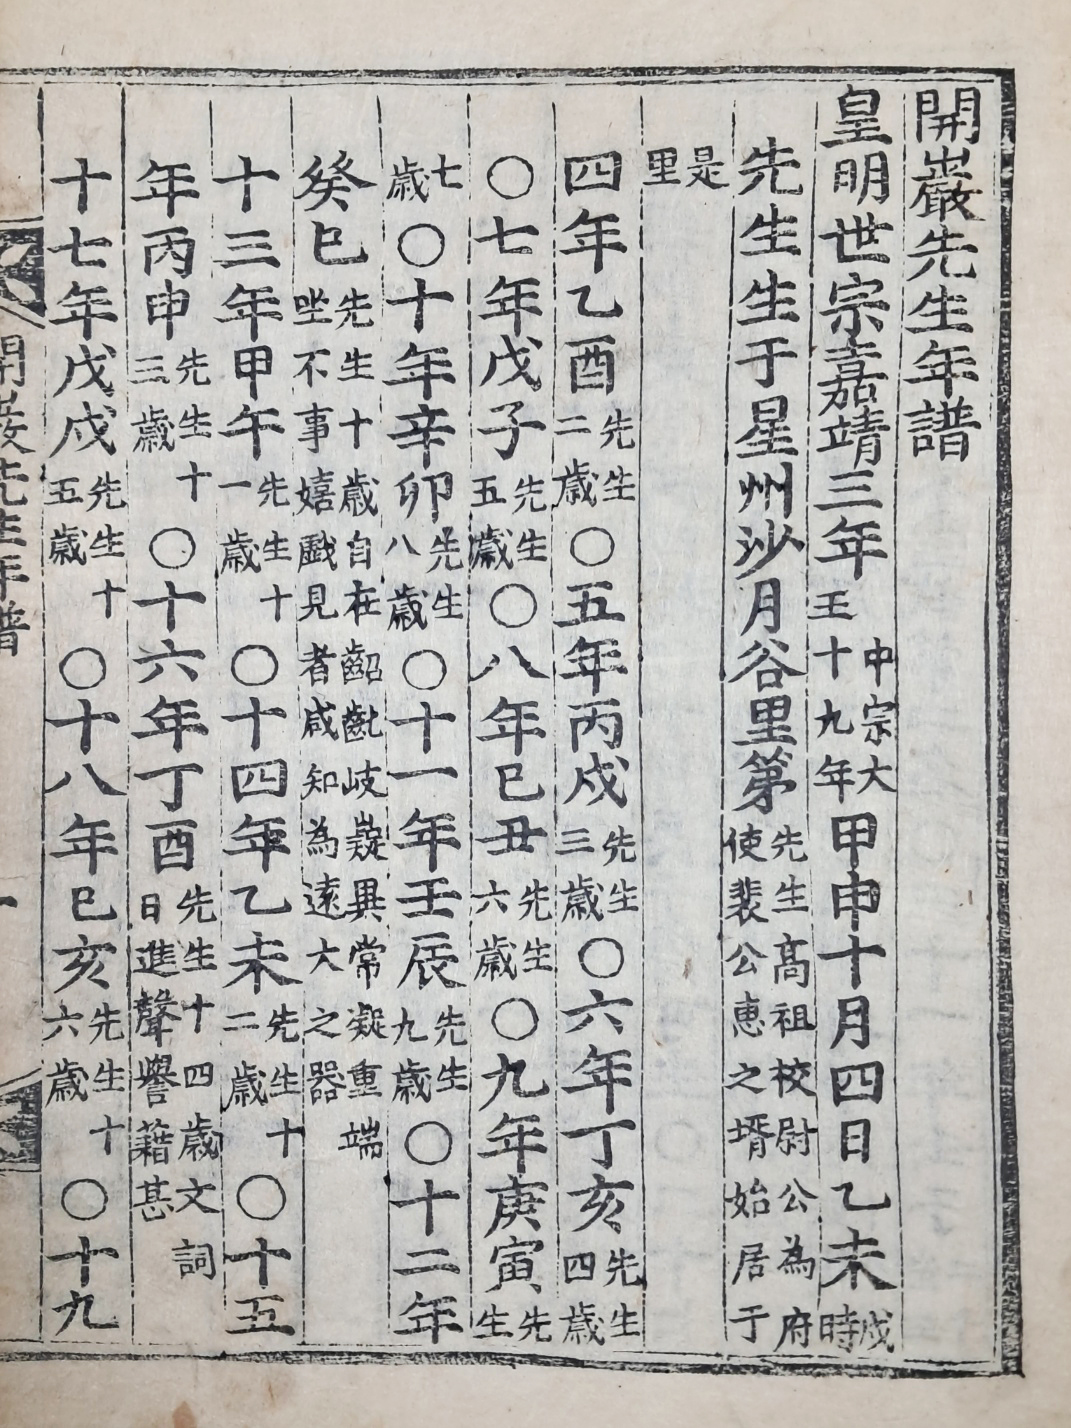 開巖先生年譜
皇明世宗嘉靖三年中宗大王十九年甲申十月四日乙未戌時
先生生于星州沙月谷里第先生高祖校尉公為府使裴公惠之壻始居于
是里
四年乙酉先生二歲○五年丙戌先生三歲○六年丁亥先生四歲
○七年戊子先生五歲○八年己丑先生六歲○九年庚寅先生
七歲○十年辛卯先生八歲○十一年壬辰先生九歲○十二年
癸巳先生十歲自在齠齔岐嶷異常凝重端坐不事嬉戲見者咸知為遠大之器
十三年甲午先生十一歲○十四年乙未先生十二歲○十五
年丙申先生十三歲○十六年丁酉先生十四歲文詞日進聲譽藉甚
十七年戊戌先生十五歲○十八年己亥先生十六歲○十九
開巖先生年譜